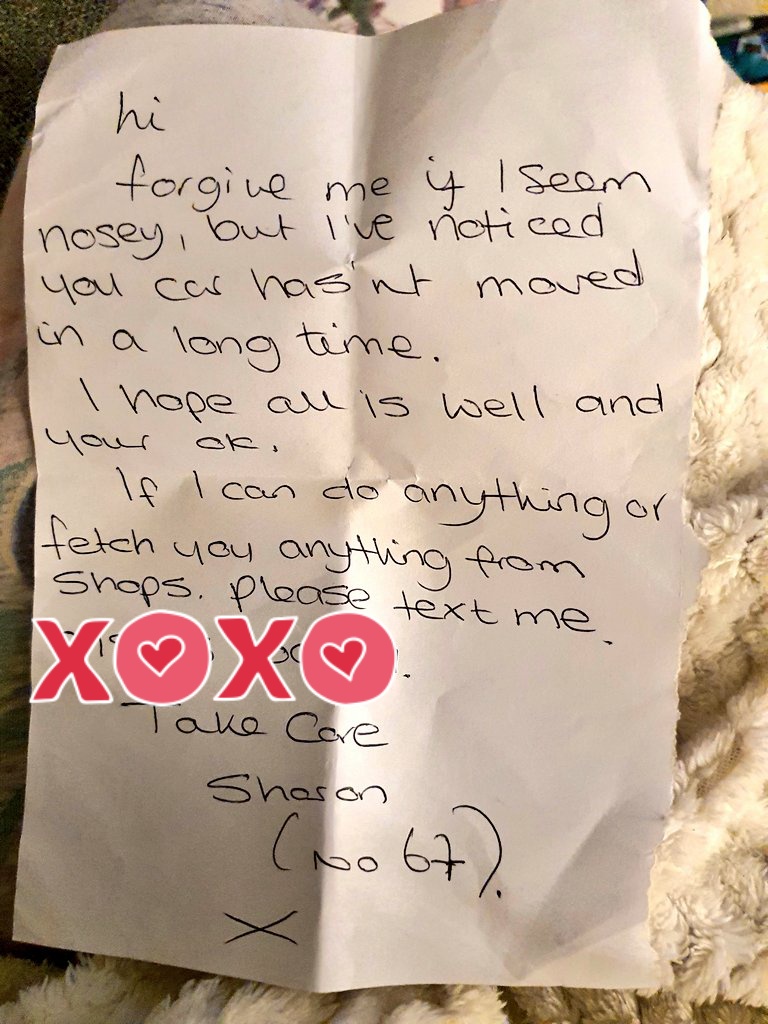 hi
forgive me if I seem
nosey, but I've noticed
you car has'nt moved
in a long time.
I hope all is well and
your ok.
If I can do anything or
fetch you anything from
shops. please text me.
XOXO
Take Care
Sharon
(No 67).
X